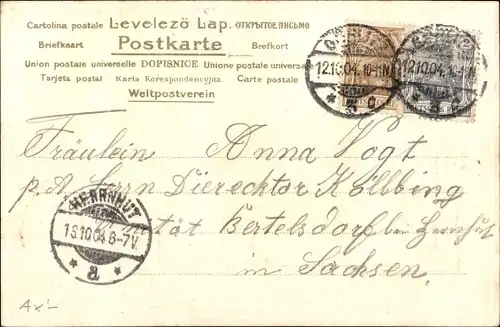 Cartolina postale Levelezö Lap. ОТКРЫТОЕ ПИСЬМО
Briefkaart Postkarte Brefkort
Union postale universelle DOPISNICE Unione postale universale
Tarjeta postal Karta Korespondencyjna. Carte postale
Weltpostverein
12.10.04. 10-11N.
12.10.04. 10-11N.
Fräulein Anna Vogt
p. A. Herrn Dierechtor Kölbing
Bertelsdorf bei Herrnhut
in Sachsen.
HERRNHUT
13.10.04. 6-7V.
* a *